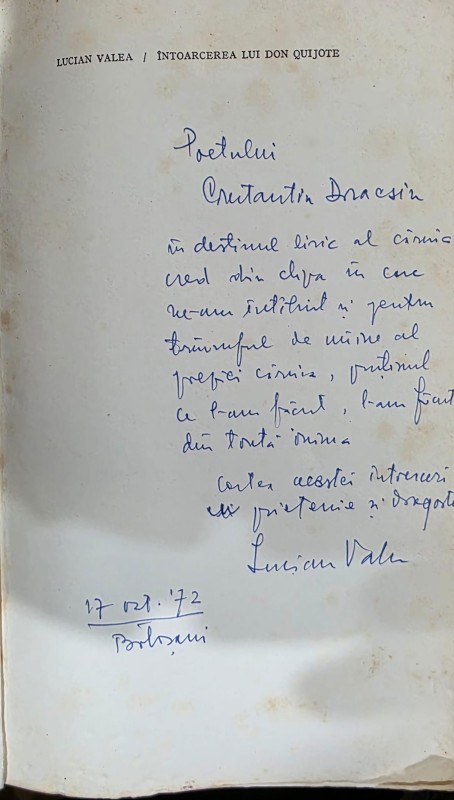 LUCIAN VALEA / ÎNTOARCEREA LUI DON QUIJOTE
Poetului
Constantin Dracsin
în destinul liric al căruia
cred din clipa în care
ne-am întîlnit și pentru
triumful de mîine al
poeziei căruia, puținul
ce l-am făcut, l-am făcut
din toată inima
cartea acestei întoarceri
prietenie și dragoste
Lucian Valea
17 oct. '72
Botoșani